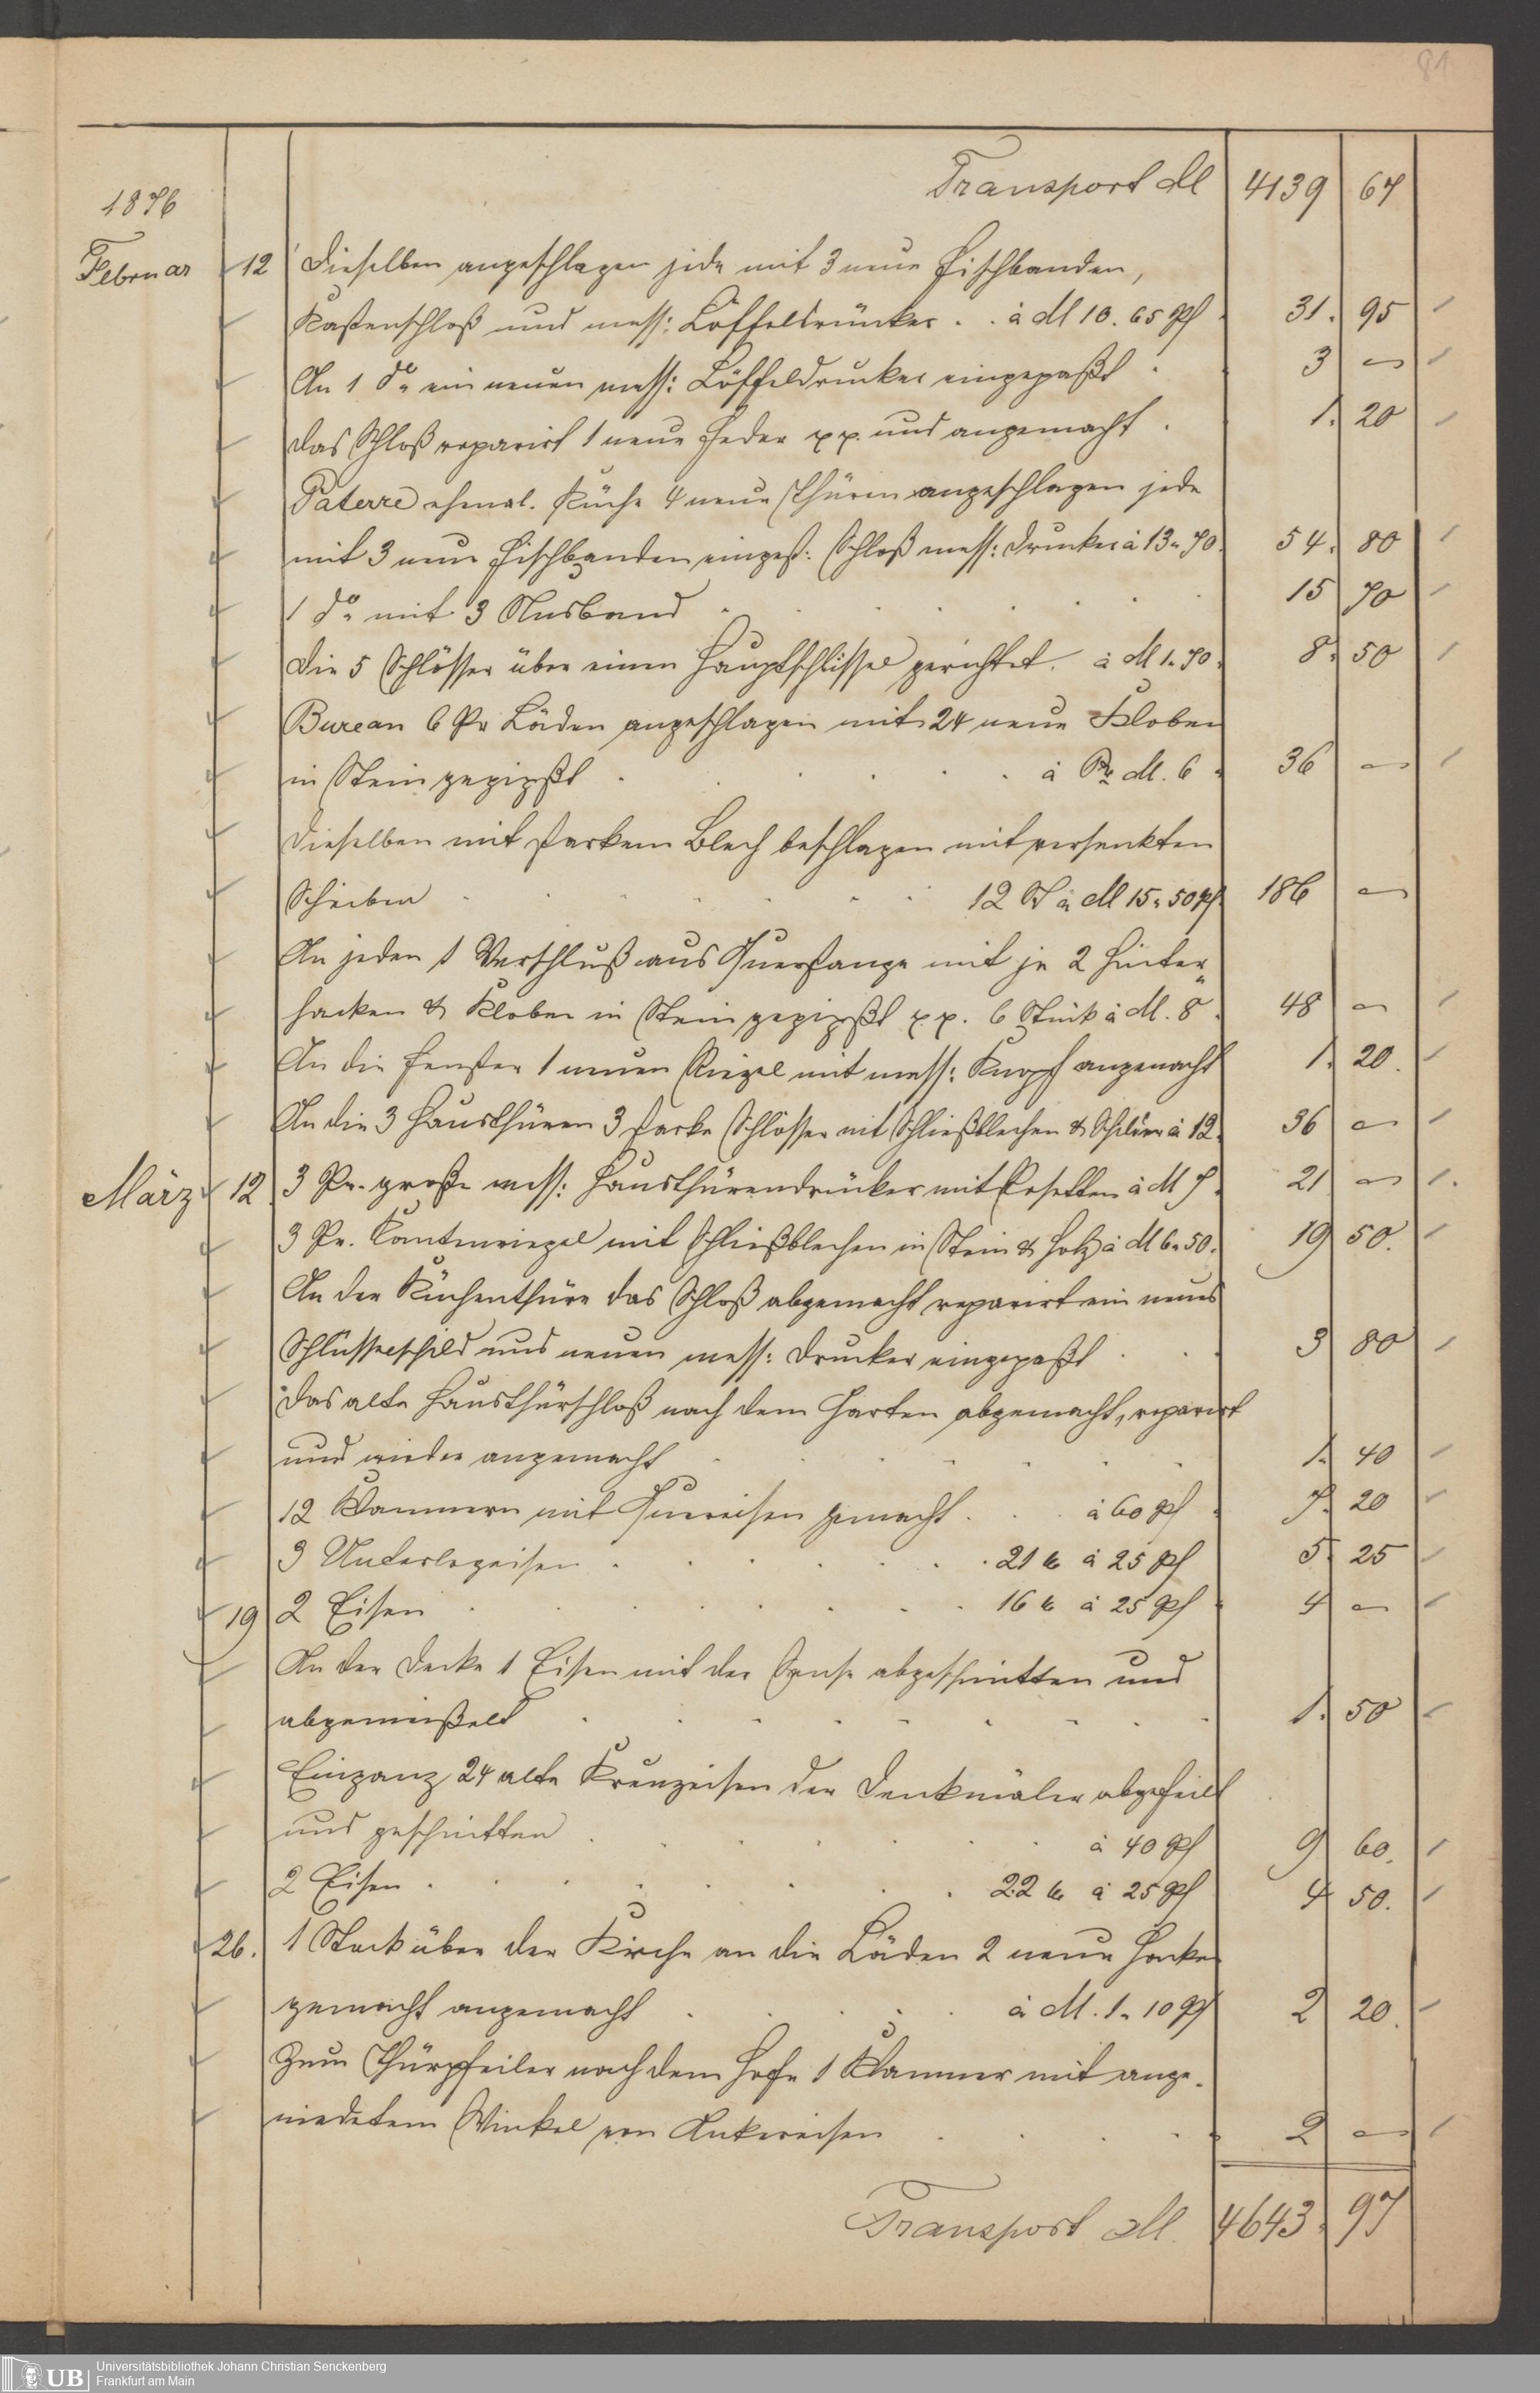 81
Transport M 4139 67
1876
Februar 12 Dieselben angeschlagen jede mit 3 neue Fischbanden,
Kastenschloß und mess: Löffeldrücker . . à M 10. 65 Pf 31. 95
An 1 do ein neuen mess: Löffeldrucker eingepaßt . 3 —
das Schloß reparirt 1 neue Feder pp. und angemacht . 1. 20
Paterre ehmal. Küche 4 neue Thüren angeschlagen jede
mit 3 neue Fischbanden eingest: Schloß mess: Drucker à 13. 70. 54. 80
1 do mit 3 Nusband 15 70
Die 5 Schlösser über einen Hauptschlissel gerichtet. à M 1. 70. 8. 50
Bureau 6 Pr Läden angeschlagen mit 24 neue Kloben
in Stein gegipßt . . . à Pr M. 6 36 —
Dieselben mit starkem Blech beschlagen mit versenkten
Schieben 12 St à M 15. 50 Pf 186 —
An jeden 1 Verschluß aus Querstange mit je 2 Hinter„
hacken & Kloben in Stein gegipßt pp. 6 Stück à M. 8 . 48 —
An die Fenster 1 neuen Riegel mit mess: Knopf angemacht 1. 20.
An die 3 Hausthüren 3 starke Schlösser mit Schließblechen & Schilder à 12. 36 —
März 12 3 Pr. große mess: Hausthürendrücker mit Rosetten à M 7 . 21 —
3 Pr. Kantenriegel mit Schließblechen in Stein & Holz à M 6. 50. 19 50.
An der Küchenthüre das Schloß abgemacht reparirt ein neues
Schlüsselschild und neuen mess: Drucker eingepaßt . . . 3 80
Das alte Hausthürschloß nach dem Garten abgemacht, reparirt
und wieder angemacht 1. 40
12 Klammern mit Quereisen gemacht . . . à 60 Pf 7. 20
3 Unterlegeisen . . . 21 ℔ à 25 Pf 5. 25
19 2 Eisen . . . 16 ℔ à 25 Pf 4 —
An der Decke 1 Eisen mit der abgeschnitten und
abgemeißelt 1. 50
Eingang 24 alte Kreuzeisen der Denkmäler abgefeilt
und geschnitten . . . à 40 Pf 9 60.
2 Eisen . . . 22 ℔ à 25 Pf 4 50.
26. 1 Stock über der Kirche an die Läden 2 neue Hacke
gemacht angemacht . . . à M. 1. 10 Pf 2 20.
Zum Thürpfeiler nach dem Hofe 1 Klammer mit ange„
niedetem Winkel von Ankereisen . . . 2 —
Transport M. 4643. 97
UB Universitätsbibliothek Johann Christian Senckenberg
Frankfurt am Main